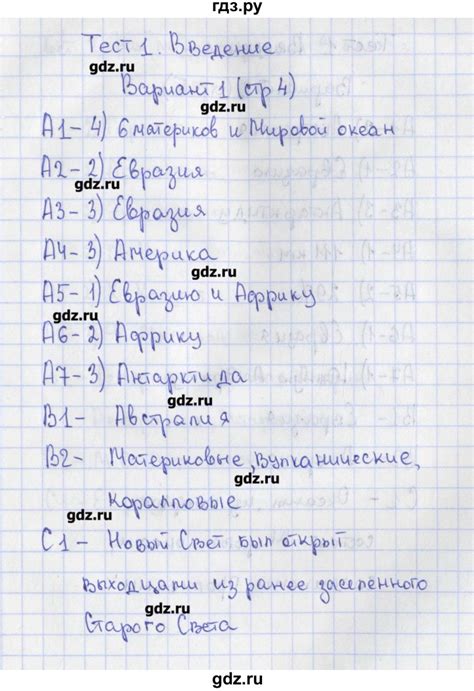 гдз.ру
Тест 1. Введение
gdz.ru
Вариант 1 (стр 4)
gdz.ru
А1- 4) 6 материков и Мировой океан
gdz.ru
А2- 2) Евразия
gdz.ru
А3- 3) Евразия
gdz.ru
А4- 3) Америка
gdz.ru
А5- 1) Евразию и Африку
gdz.ru
А6- 2) Африку
gdz.ru
А7- 3) Антарктида
gdz.ru
В1- Австралия
gdz.ru
В2- Материковые, Вулканические,
gdz.ru
Коралловые
gdz.ru
С1- Новый Свет был открыт
gdz.ru
выходцами из ранее заселенного
gdz.ru
Старого Света
gdz.ru